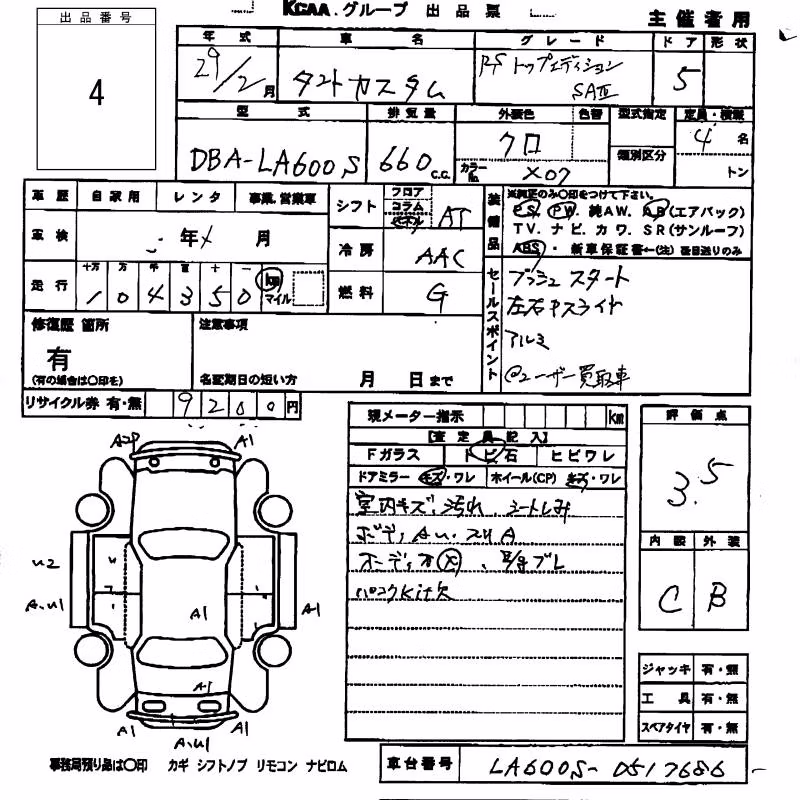 KCAA.グループ 出品票 主催者用
出品番号
4
年式 車名 グレード ドア 形状
29/2月 タントカスタム RS トップエディション SAⅢ 5
型式 排気量 外装色 色替 型式指定 定員・積載
DBA-LA600S 660 C.C. クロ 類別区分 4名
カラーNo. X07 トン
車歴 自家用 レンタ 事業.営業車
車検 年 月
走行 十万 万 千 百 十 一
1 0 4 3 5 0 km マイル
シフト フロア コラム パネル AT
冷房 AAC
燃料 G
装備品 ※純正のみ〇印をつけて下さい。
PS. PW. 純AW. AB(エアバック)
TV. ナビ. カワ. SR(サンルーフ)
ABS・ 新車保証書←(注)後日送りのみ
セールスポイント
プッシュスタート
左右Pスライド
アルミ
@ユーザー買取車
修復歴 箇所
有
(有の場合は〇印を)
注意事項
名変期日の短い方 月 日まで
リサイクル券 有・無 9200円
現メーター指示 km
【査定員記入】
Fガラス トビ石 ヒビワレ
ドアミラー キズ・ワレ ホイール(CP) キズ・ワレ
室内キズ、汚れ、シートしみ
ボディAU・スリA
パンクkit欠
評価点
3.5
内装 外装
C B
ジャッキ 有・無
工具 有・無
スペアタイヤ 有・無
A2P A1
U2
A.U1 A1 A1
A1
A1 A.U1 A1
事務局預り品は〇印 カギ シフトノブ リモコン ナビロム
車台番号 LA600S-0517686